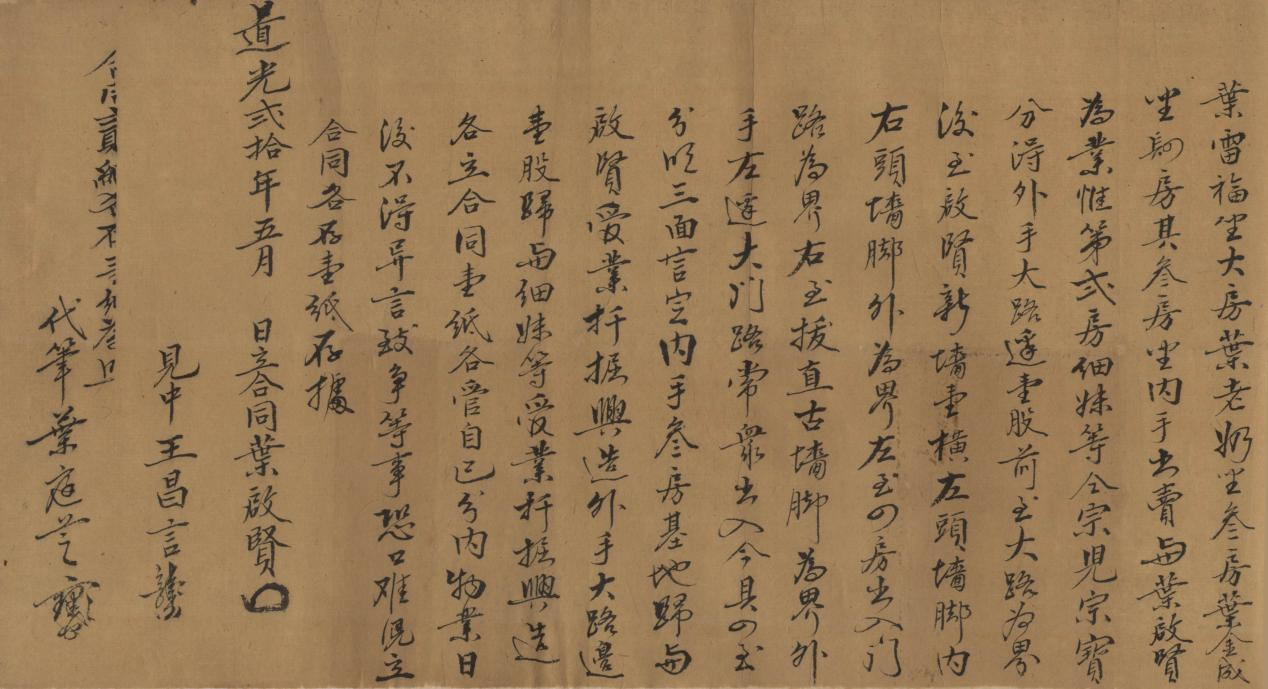 葉雷福坐大房葉老妳坐叁房葉金成
坐四房其叁房坐内手出賣與葉啟賢
為業惟第弍房細妹等仝宗兄宗寶
分淂外手大路邊壹股前至大路為界
後至啟賢新墻壹橫左頭墻脚内
右頭墻脚外為界左至四房出入门
路為界右至拔直古墻脚為界外
手左邊大门路常衆出入今具四至
分明三面言定内手叁房基地歸與
啟賢受業扦掘興造外手大路邊
壹股歸與細妹等受業扦掘興造
各立合同壹紙各管自己分内物業日
後不淂异言致爭等事恐口难凭立
合同各存壹紙存據
道光弍拾年五月 日立合同葉啟賢
見中王昌言
代筆葉庭